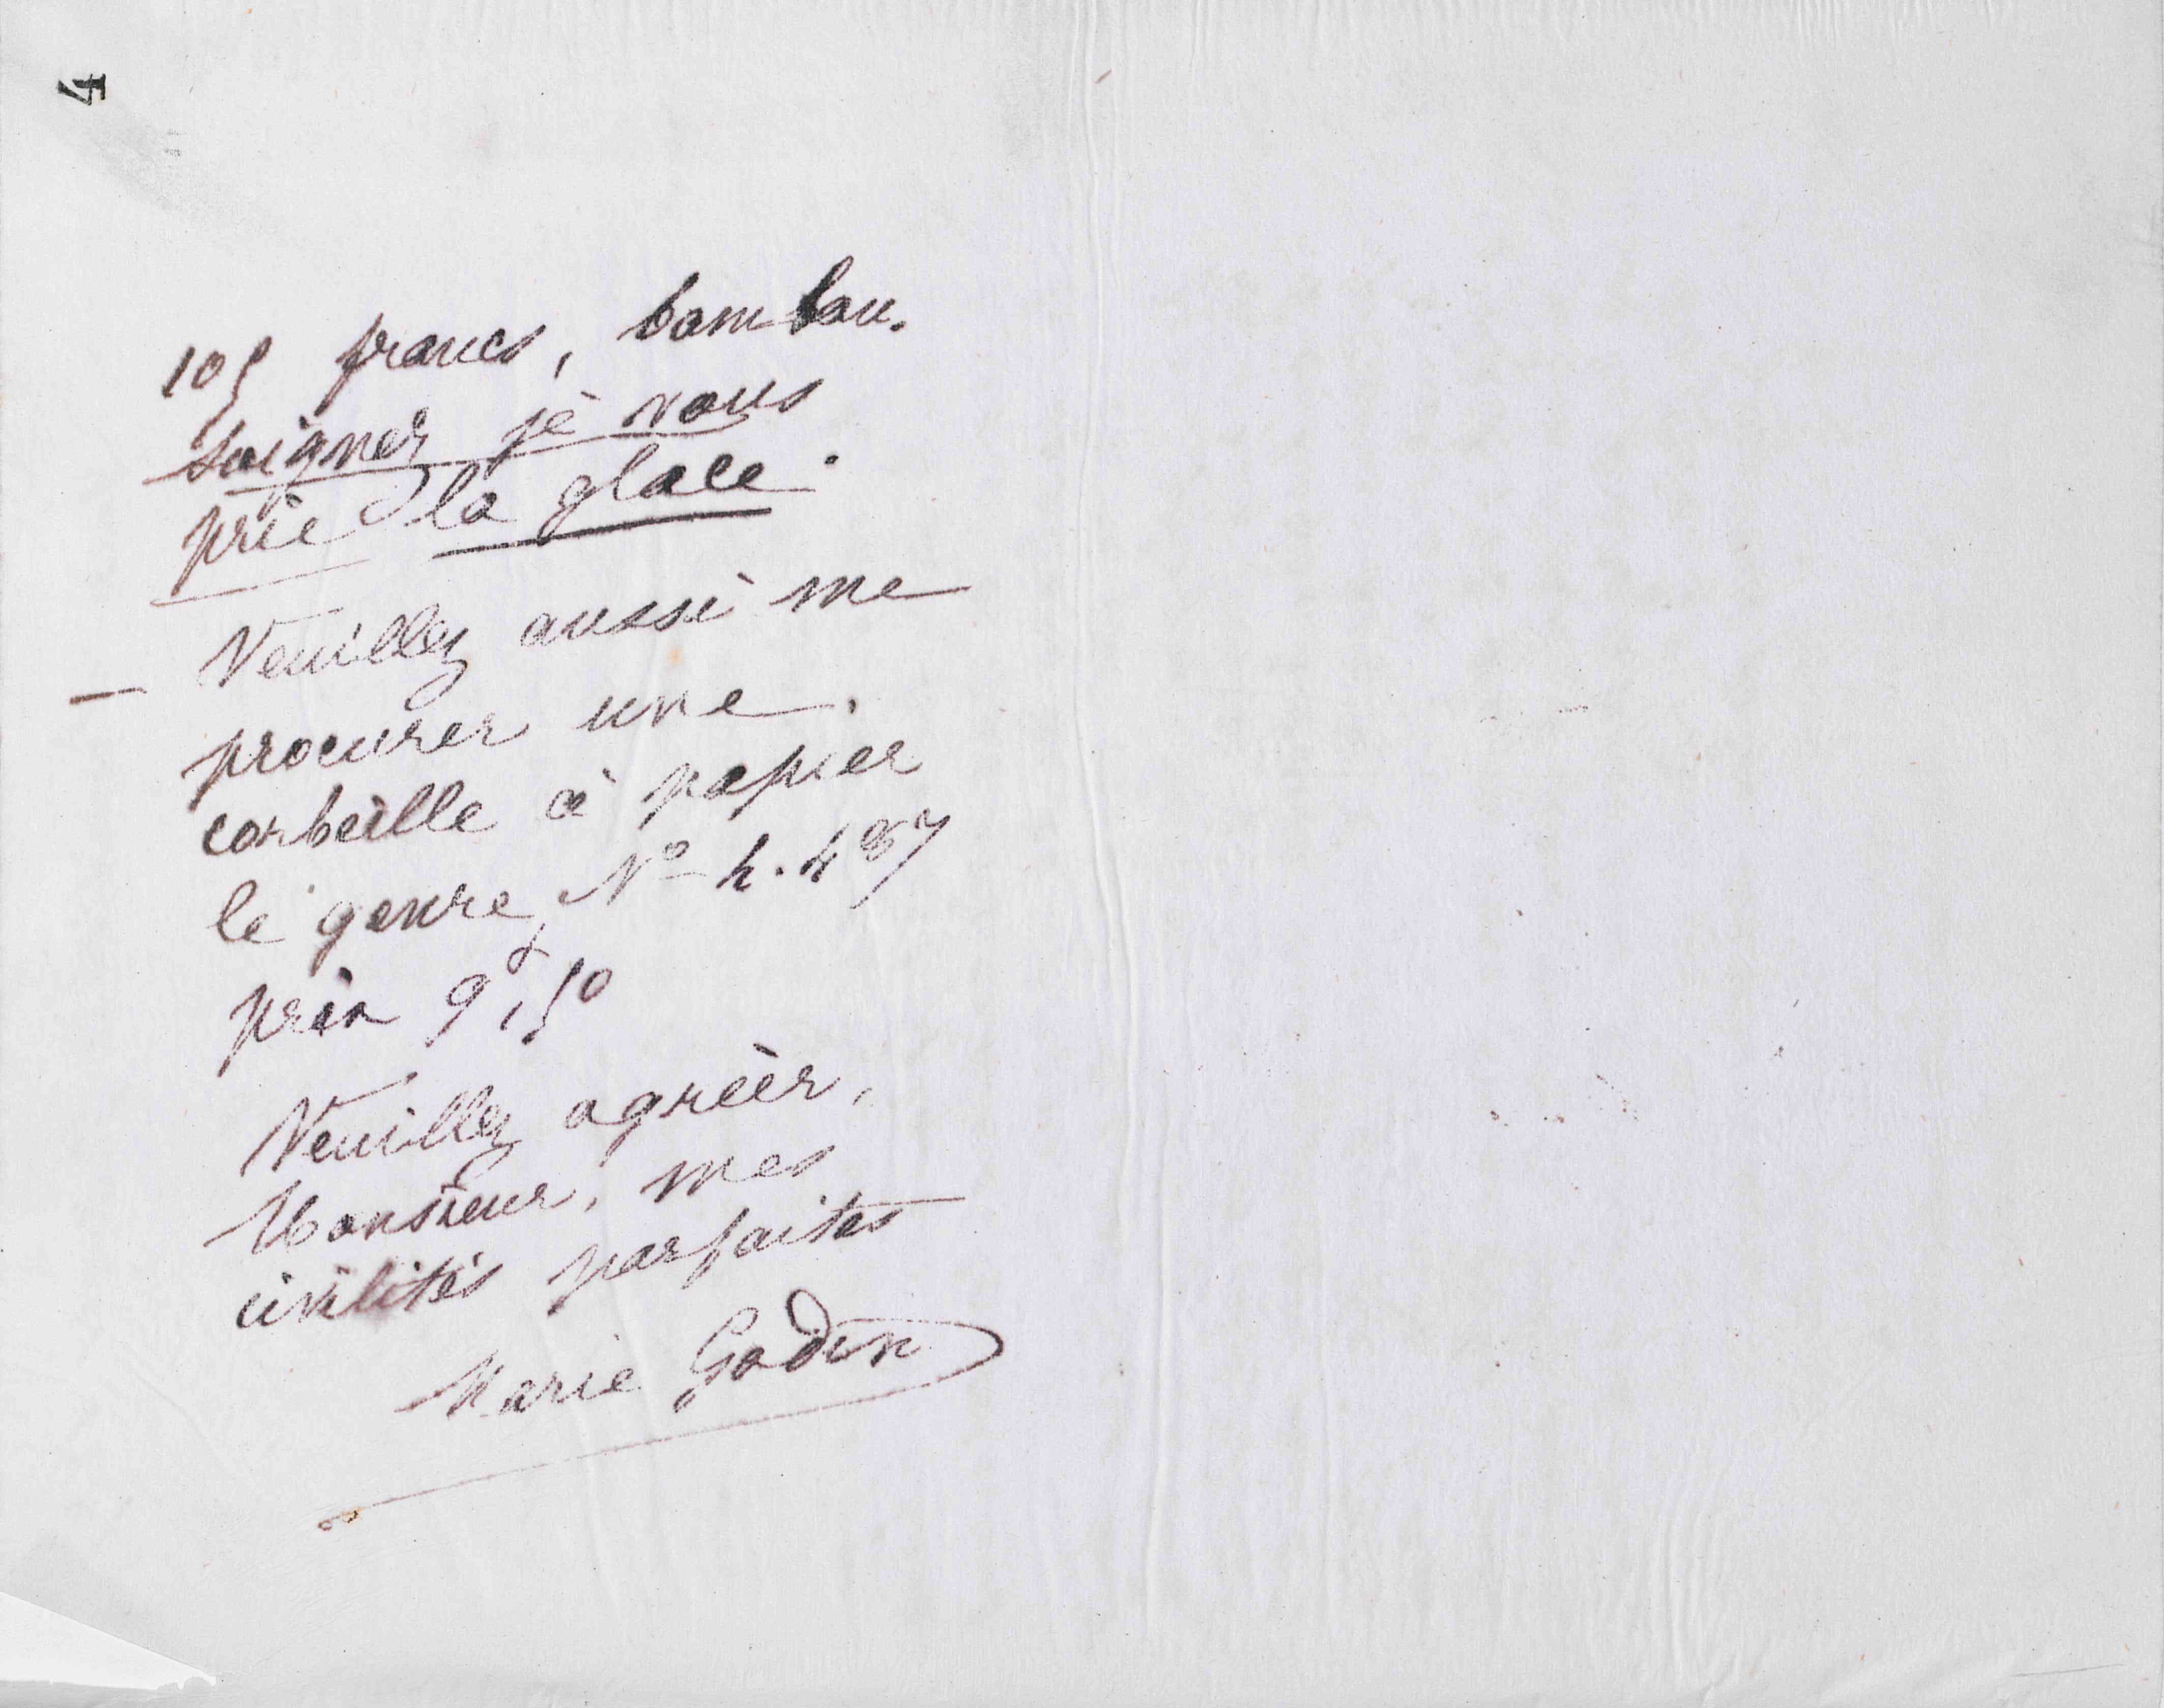 4
105 francs, bambou.
soignez je vous
prie la glace.
— Veuillez aussi me
procurer une
corbeille à papier
le genre, Nº h. 487
prix 9f,50
Veuillez agréer,
Monsieur, mes
civilités parfaites
Marie Godin